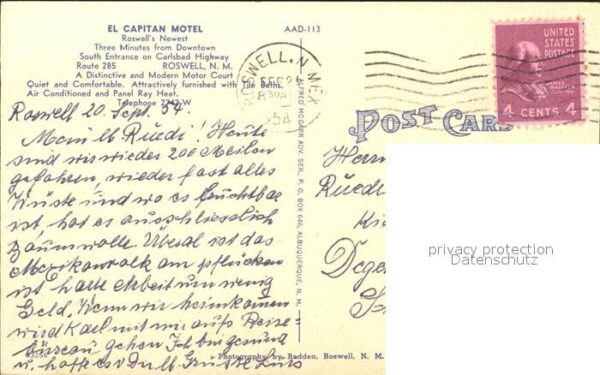 EL CAPITAN MOTEL
Roswell's Newest
Three Minutes from Downtown
South Entrance on Carlsbad Highway
Route 285 ROSWELL, N. M.
A Distinctive and Modern Motor Court
Quiet and Comfortable. Attractively furnished with Tile Baths.
Air Conditioned and Panel Ray Heat.
Telephone 2242-W
AAD-113
ROSWELL, N. MEX
SEP 21
8 30 AM
54
UNITED
STATES
POSTAGE
JAMES
MADISON
4 CENTS 4
POST CARD
Roswell 20. Sept. 54.
Mein lb Ruedi! Heute
sind wir wieder 200 Meilen
gefahren, wieder fast alles
Wüste und wo es fruchtbar
ist, hat es ausschliesslich
Baumwolle. Überal ist das
Mexikanvolk am pflücken
ist harte Arbeit um wenig
Geld. Wenn wir heimkommen
wird Karl mit mir aufs Reise-
büreau gehen. Ich bin gesund
u. hoffe es v Du lb. Grüsse
ALFRED MCGARR ADV. SER., P. O. BOX 646, ALBUQUERQUE, N. M.
Herrn
Ruedi
Dege
privacy protection
Datenschutz
Photography by Rodden, Roswell, N. M.